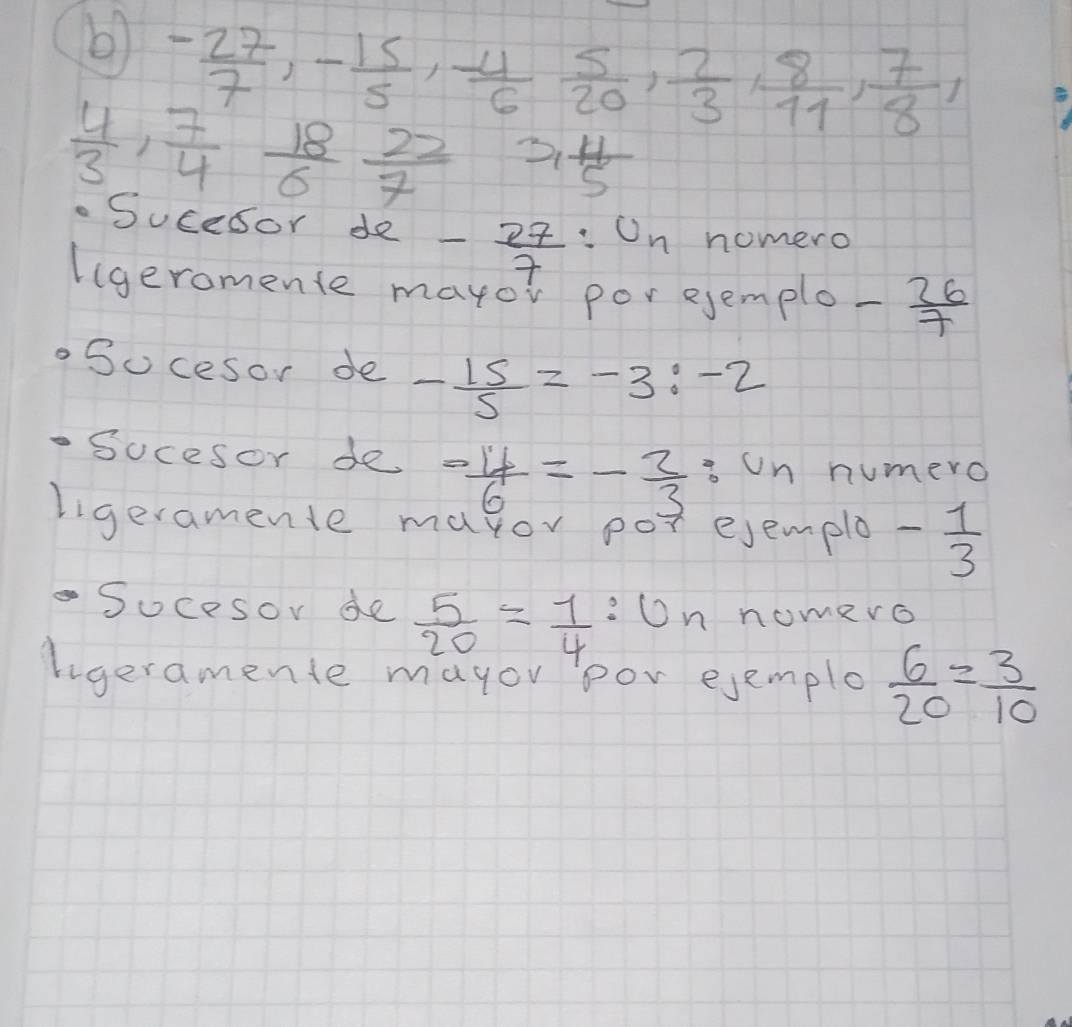 b) -27/7, -15/5, -4/6 5/20, 2/3, 8/11, 7/8,
4/3, 7/4 18/6 22/7 3,4/5
• Sucesor de - 27/7 : Un nomero
ligeramente mayor por ejemplo - 26/7
• Sucesor de - 15/5 = -3 : -2
• Sucesor de -4/6 = - 2/3 : un numero
ligeramente mayor por ejemplo - 1/3
• Sucesor de 5/20 = 1/4 : Un nomero
ligeramente mayor por ejemplo 6/20 = 3/10